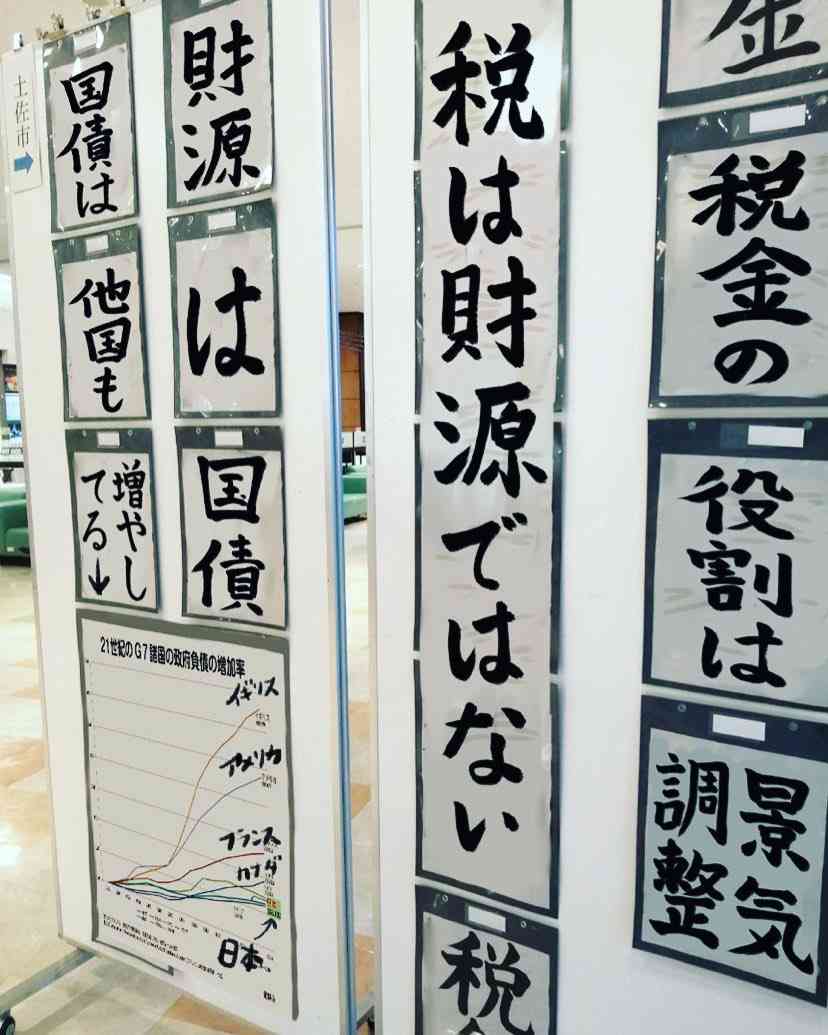 土佐市
国債は
他国も
増やし
てる↓
財源
は
国債
21世紀のG7諸国の政府負債の増加率
イギリス
アメリカ
フランス
カナダ
日本
税は財源ではない
税
金
税金の
役割は
景気
調整